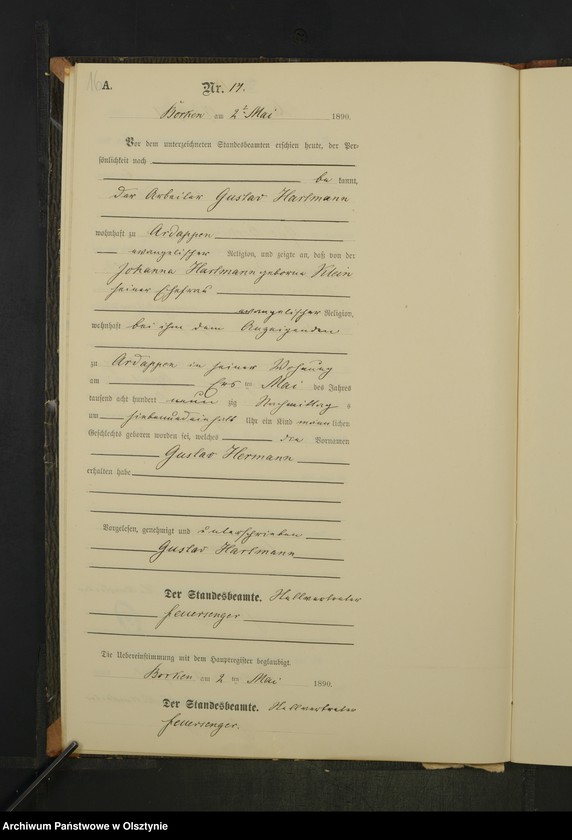 16 A.
Nr. 17.
Borken am 2t Mai 1890.
Vor dem unterzeichneten Standesbeamten erschien heute, der Per-
sönlichkeit nach
be kannt,
der Arbeiter Gustav Hartmann
wohnhaft zu Ardappen
evangelischer Religion, und zeigte an, daß von der
Johanna Hartmann geborne Klein
seiner Ehefrau
evangelischer Religion,
wohnhaft bei ihm dem Anzeigenden
zu Ardappen in seiner Wohnung
am ten Mai des Jahres
tausend acht hundert neun zig Nachmittag s
um siebenundeinhalb Uhr ein Kind männ lichen
Geschlechts geboren worden sei, welches die Vornamen
Gustav Hermann
erhalten habe
Vorgelesen, genehmigt und unterschrieben
Gustav Hartmann
Der Standesbeamte. Stellvertreter
Feuersenger
Die Uebereinstimmung mit dem Hauptregister beglaubigt.
Borken am 2 ten Mai 1890.
Der Standesbeamte. Stellvertreter
Feuersenger.
Archiwum Państwowe w Olsztynie